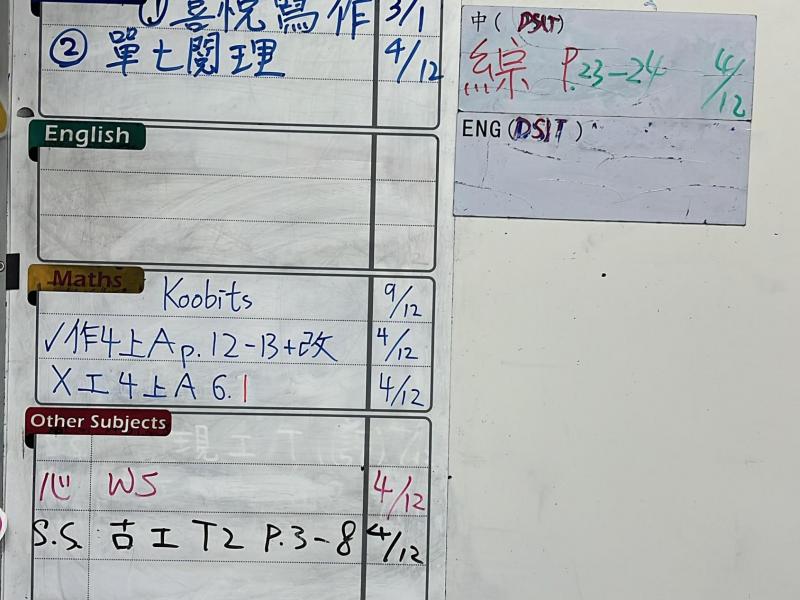 ① 喜悅寫作 3/1
② 單七閱理 4/12
English
Maths
Koobits 9/12
✓作4上A p.12-13+改 4/12
X工4上A 6.1 4/12
Other Subjects
心 WS 4/12
S.S. 古工T2 P.3-8 4/12
中(DSIT)
綜 P.23-24 4/12
ENG(DSIT)